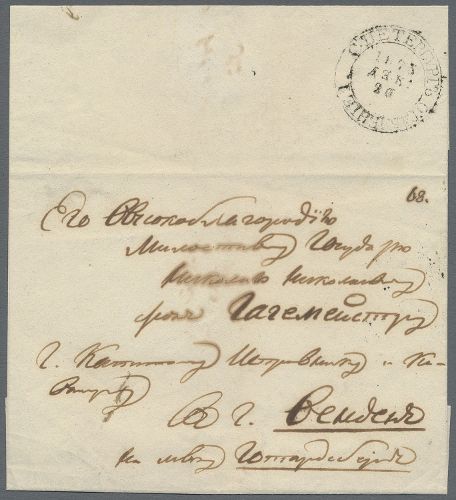 С.ПЕТЕРБУРГЪ
ДЕК:
20
68.
Его Высокоблагородiю
Милостивому Государю
Николаю Николаевичу
фонъ Гагемейстеру
г. Капитану Исправнику и Ка-
валеру
Въ г. Венденъ
на мызу